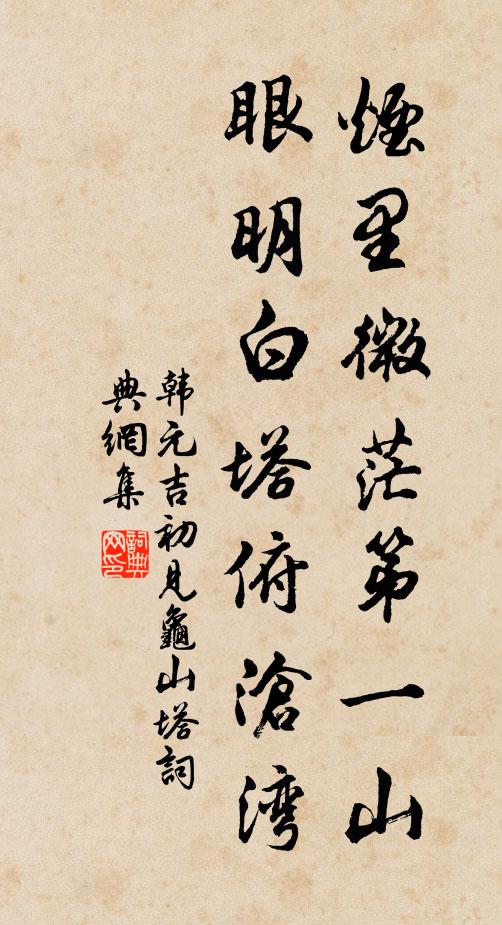 煙里微茫第一山
眼明白塔俯滄湾
韩元吉初見龜山塔詞
典網集
詞典
网印